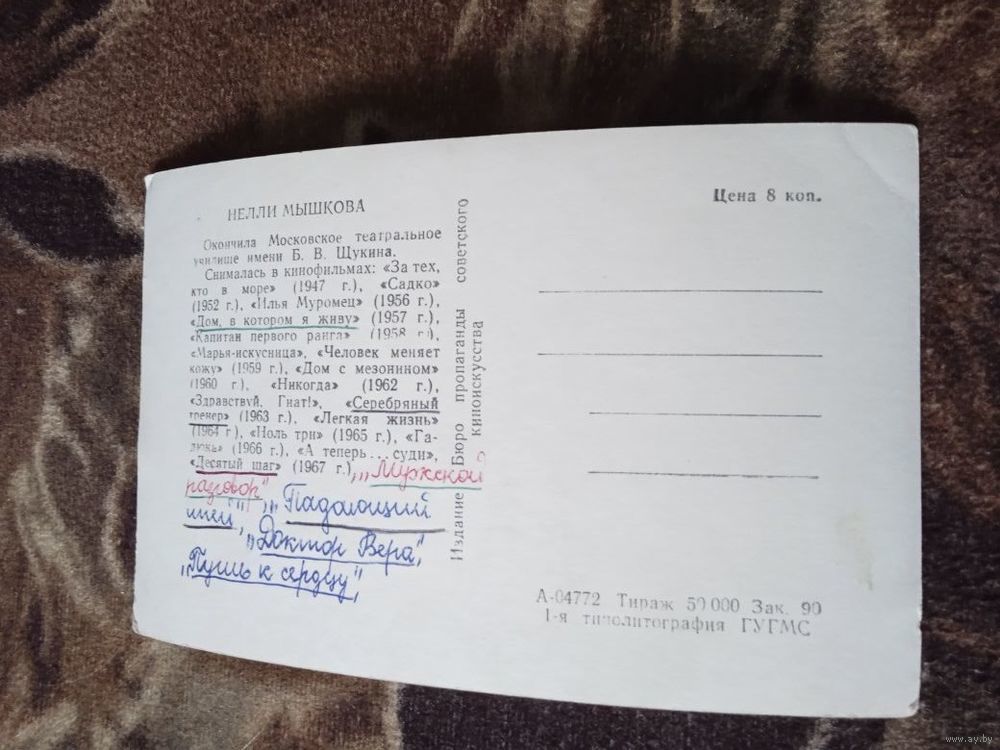 НЕЛЛИ МЫШКОВА
Окончила Московское театральное
училище имени Б. В. Щукина.
Снималась в кинофильмах: «За тех,
кто в море» (1947 г.), «Садко»
(1952 г.), «Илья Муромец» (1956 г.),
«Дом, в котором я живу» (1957 г.),
«Капитан первого ранга» (1958 г.),
«Марья-искусница», «Человек меняет
кожу» (1959 г.), «Дом с мезонином»
(1960 г.), «Никогда» (1962 г.),
«Здравствуй, Гнат!», «Серебряный
тренер» (1963 г.), «Легкая жизнь»
(1964 г), «Ноль три» (1965 г.), «Га-
дюка» (1966 г.), «А теперь... суди»,
«Десятый шаг» (1967 г.), „Мужской
разговор", „Падающий
иней", „Доктор Вера",
„Путь к сердцу",
Издание Бюро пропаганды советского
киноискусства
Цена 8 коп.
А-04772 Тираж 50 000 Зак. 90
1-я типолитография ГУГМС
www.ay.by